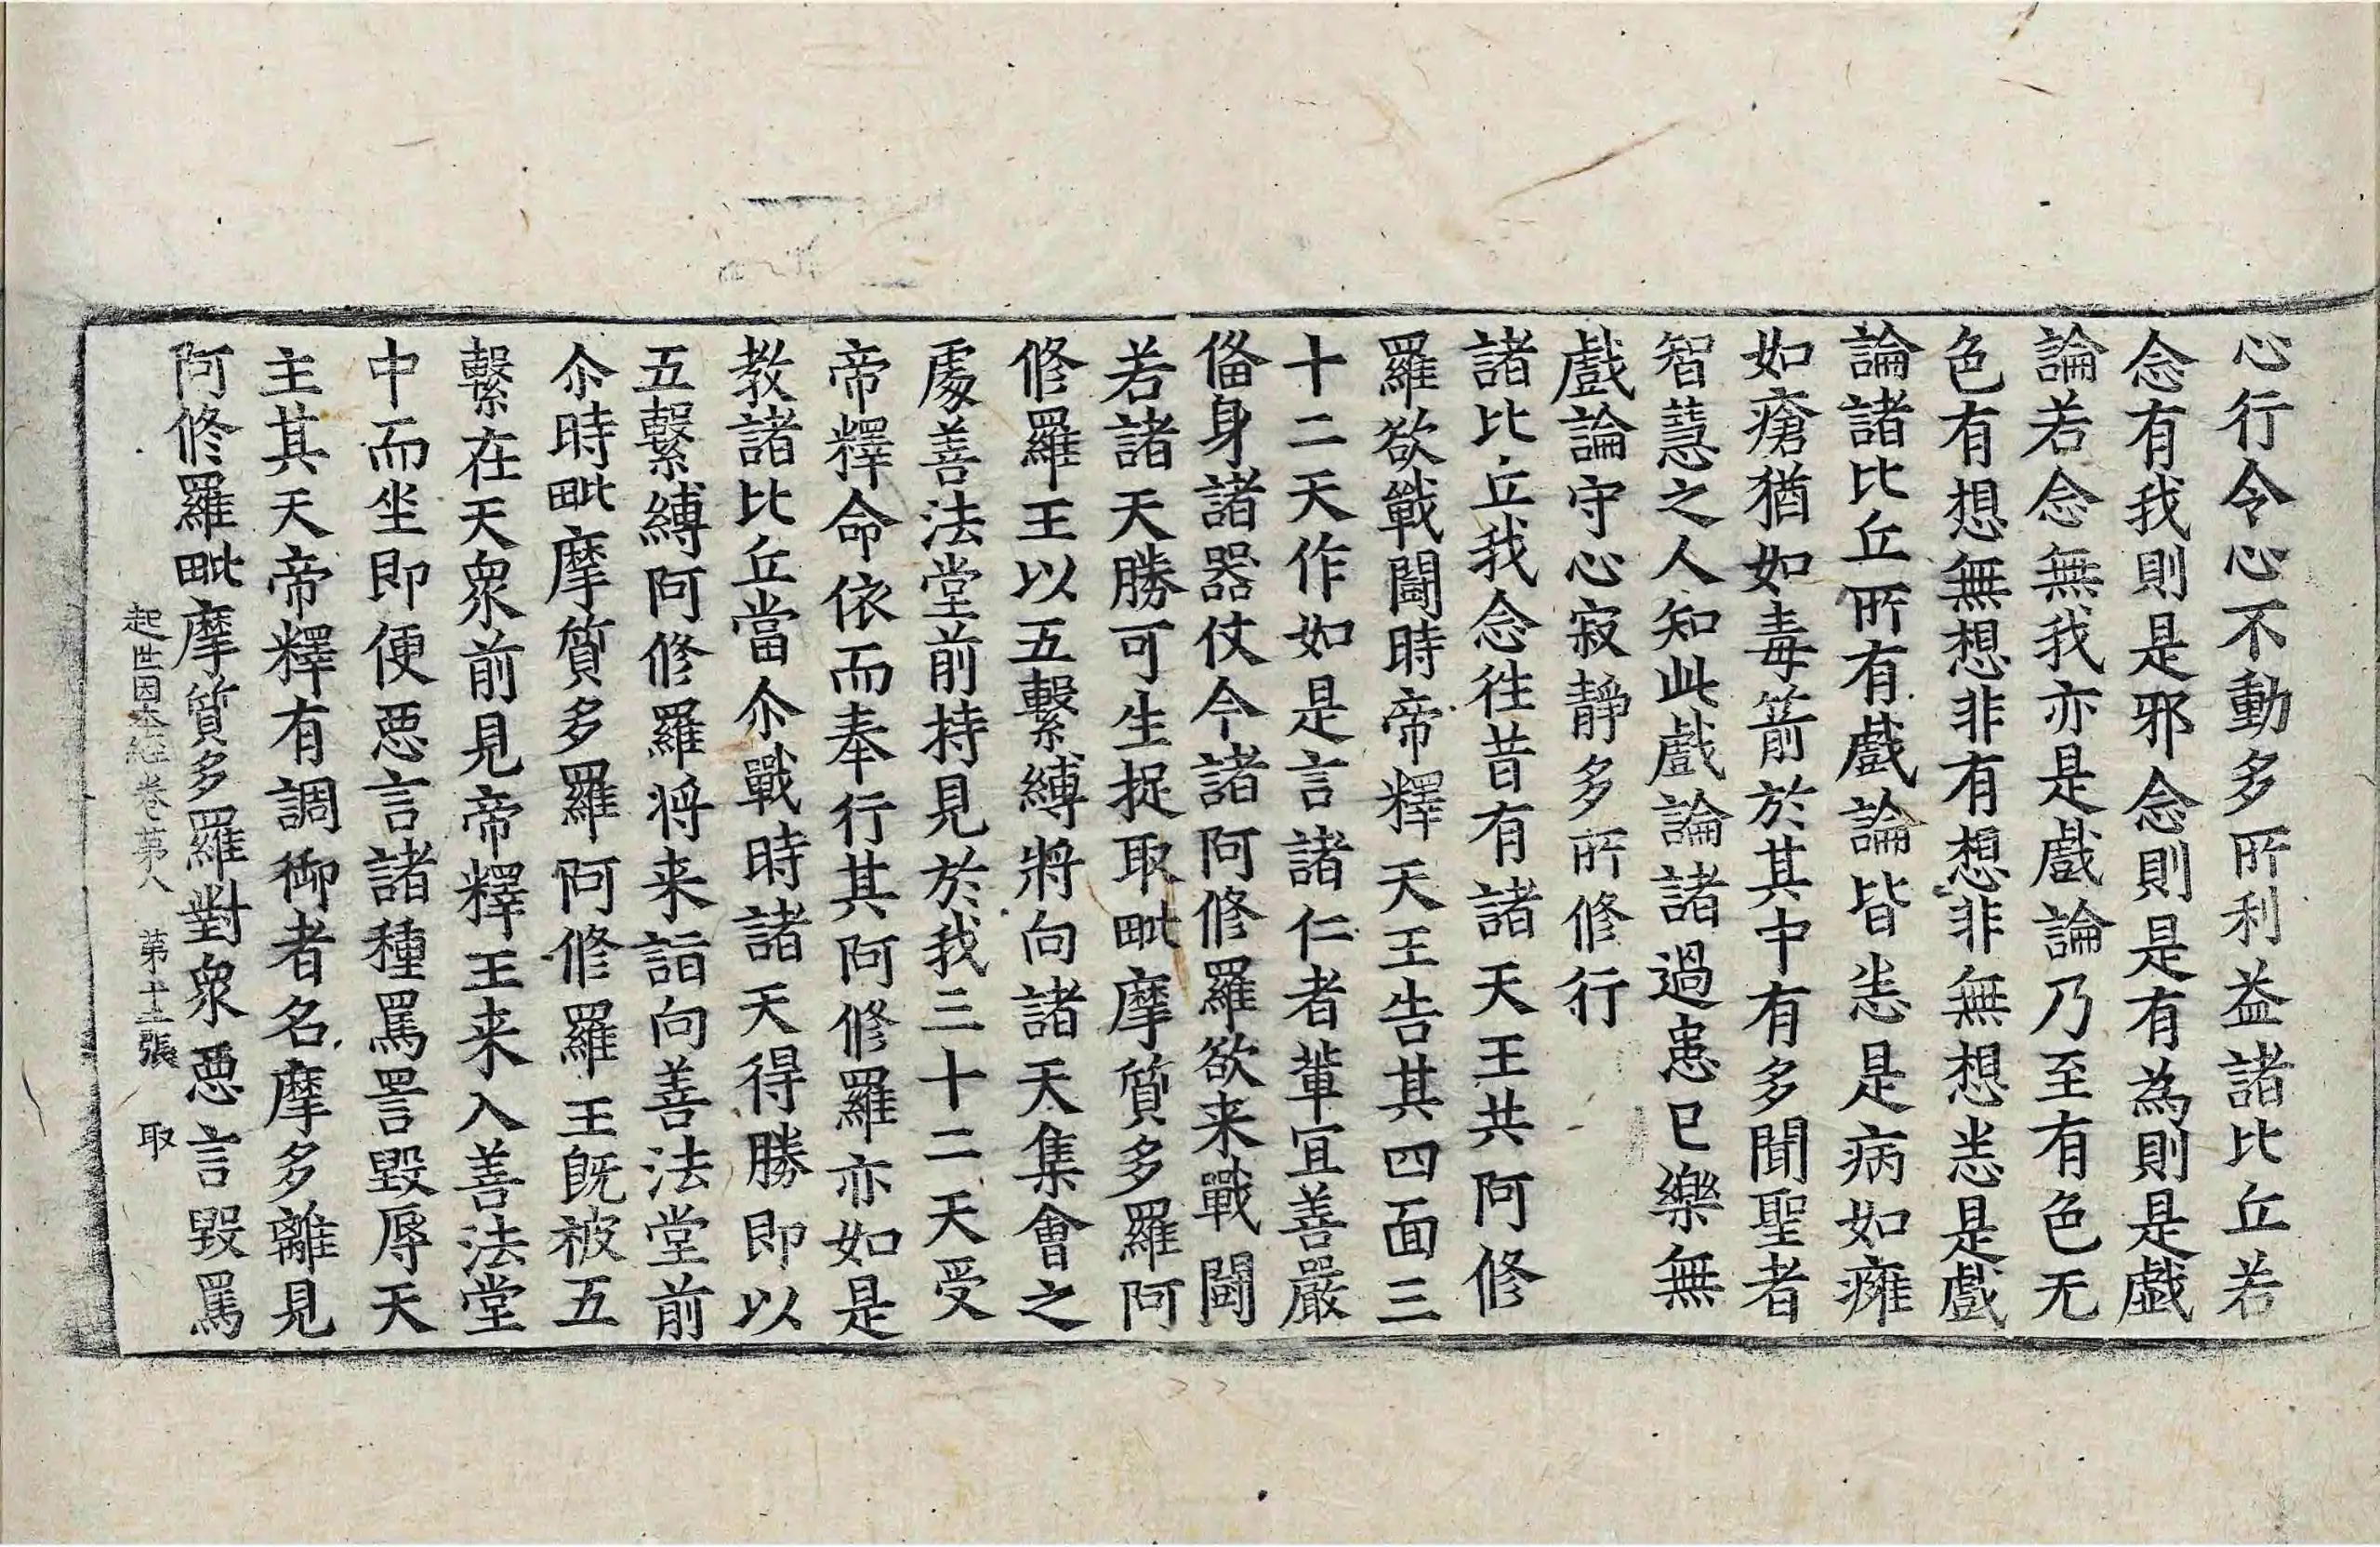 心行令心不動多所利益諸比丘若
念有我則是邪念則是有為則是戲
論若念無我亦是戲論乃至有色无
色有想無想非有想非無想悉是戲
論諸比丘所有戲論皆悉是病如癰
如瘡猶如毒箭於其中有多聞聖者
智慧之人知此戲論諸過患已樂無
戲論守心寂靜多所修行
諸比丘我念往昔有諸天王共阿修
羅欲戰鬪時帝釋天王告其四面三
十二天作如是言諸仁者輩宜善嚴
俻身諸器仗今諸阿修羅欲来戰鬪
若諸天勝可生捉取毗摩質多羅阿
修羅王以五繫縛將向諸天集會之
處善法堂前持見於我三十二天受
帝釋命依而奉行其阿修羅亦如是
教諸比丘當尒戰時諸天得勝即以
五繫縛阿修羅將来詣向善法堂前
尒時毗摩質多羅阿修羅王旣被五
繫在天衆前見帝釋王来入善法堂
中而坐即便惡言諸種罵詈毀辱天
主其天帝釋有調御者名摩多離見
阿修羅毗摩質多羅對衆惡言毀罵
起世因本經卷第八　第十二張　取